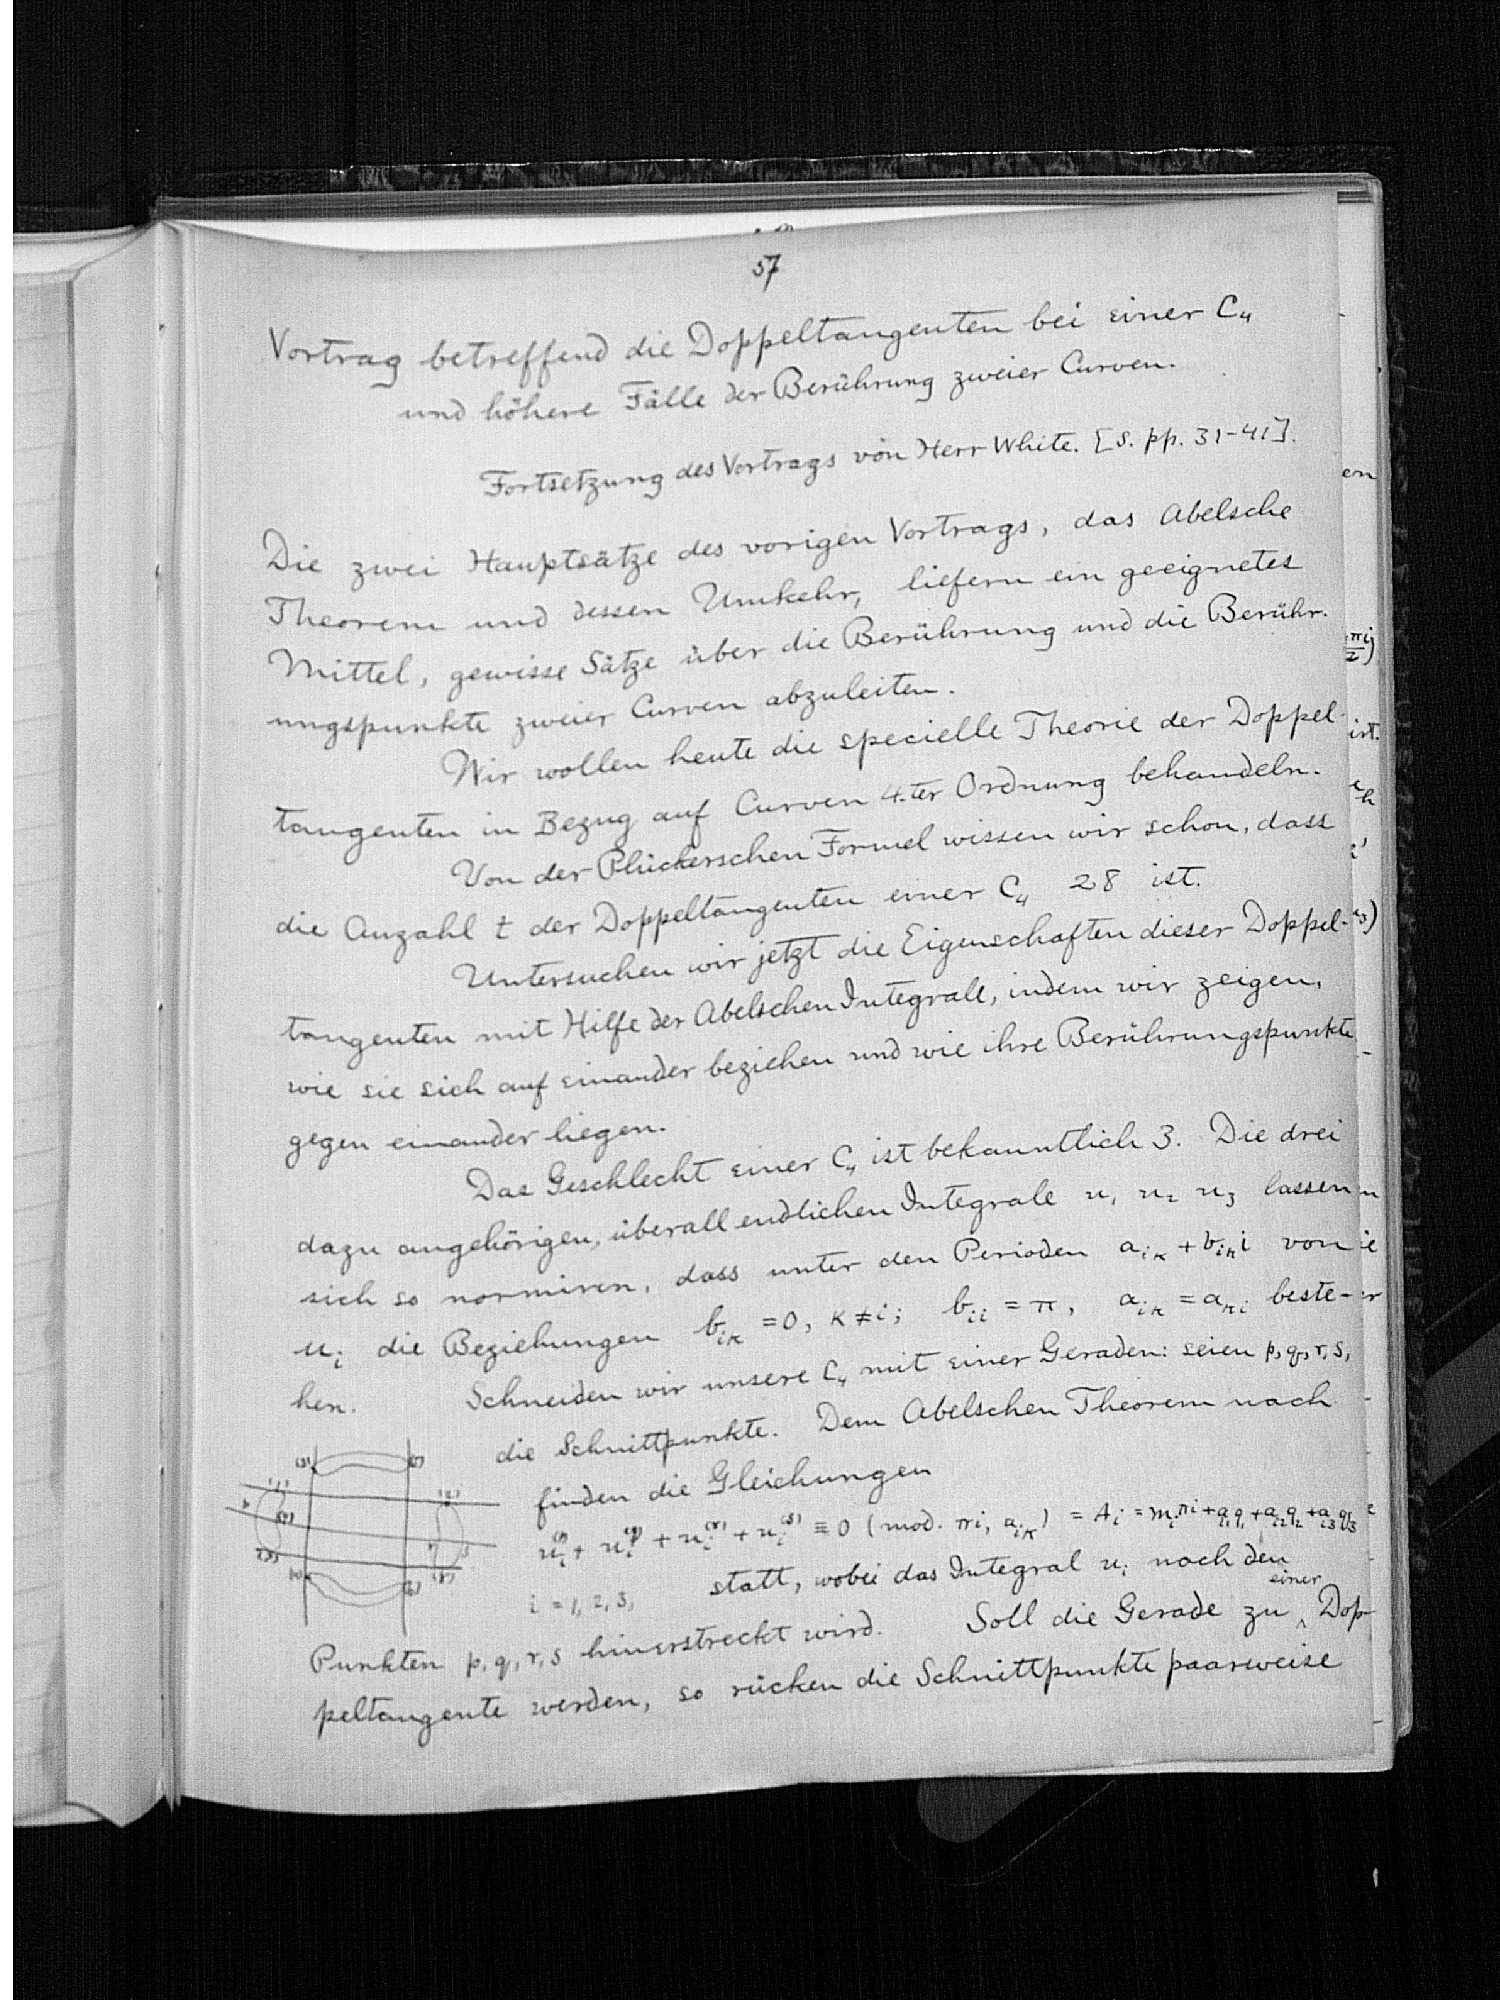 57
Vortrag betreffend die Doppeltangenten bei einer C₄
und höhere Fälle der Berührung zweier Curven.
Fortsetzung des Vortrags von Herr White. [S. pp. 31-41].
Die zwei Hauptsätze des vorigen Vortrags, das Abelsche
Theorem und dessen Umkehr, liefern ein geeignetes
Mittel, gewisse Sätze über die Berührung und die Berühr-
ungspunkte zweier Curven abzuleiten.
Wir wollen heute die specielle Theorie der Doppel-
tangenten in Bezug auf Curven 4.ter Ordnung behandeln.
Von der Plückerschen Formel wissen wir schon, dass
die Anzahl t der Doppeltangenten einer C₄ 28 ist.
Untersuchen wir jetzt die Eigenschaften dieser Doppel-
tangenten mit Hilfe der Abelschen Integrale, indem wir zeigen,
wie sie sich auf einander beziehen und wie ihre Berührungspunkte
gegen einander liegen.
Das Geschlecht einer C₄ ist bekanntlich 3. Die drei
dazu angehörigen, überall endlichen Integrale u₁ u₂ u₃ lassen
sich so normiren, dass unter den Perioden aᵢₖ + bᵢₖi von
uᵢ die Beziehungen bᵢₖ = 0, κ ≠ i; bᵢᵢ = π, aᵢₖ = aₖᵢ beste-
hen. Schneiden wir unsere C₄ mit einer Geraden: seien p, q, r, s,
die Schnittpunkte. Dem Abelschen Theorem nach
finden die Gleichungen
uᵢ⁽ᵖ⁾ + uᵢ⁽q⁾ + uᵢ⁽ʳ⁾ + uᵢ⁽ˢ⁾ ≡ 0 (mod. πi, aᵢₖ) = Aᵢ = mᵢπi + aᵢ₁q₁ + aᵢ₂q₂ + aᵢ₃q₃
i = 1, 2, 3, statt, wobei das Integral uᵢ nach den
Punkten p, q, r, s hinerstreckt wird. Soll die Gerade zu einer Dop-
peltangente werden, so rücken die Schnittpunkte paarweise